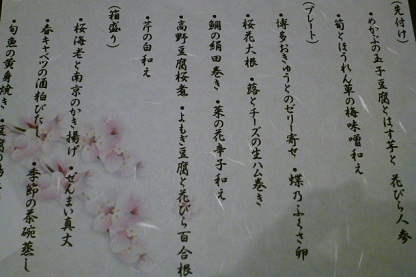 (先付け)
・めかぶの玉子豆腐とはす芋と 花びら人参
・筍とほうれん草の梅味噌和え
(プレート)
・博多おきゅうとのゼリー寄せ ・蝶乃ふくさ卵
・桜花大根 ・蕗とチーズの生ハム巻き
・鯛の絹田巻き ・菜の花辛子和え
・高野豆腐桜煮 ・よもぎ豆腐と花びら百合根
・芹の白和え
(箱盛り)
・桜海老と南京のかき揚げ ・ぜんまい真丈
・春キャベツの酒粕びたし ・季節の茶碗蒸し
・旬魚の黄身焼き